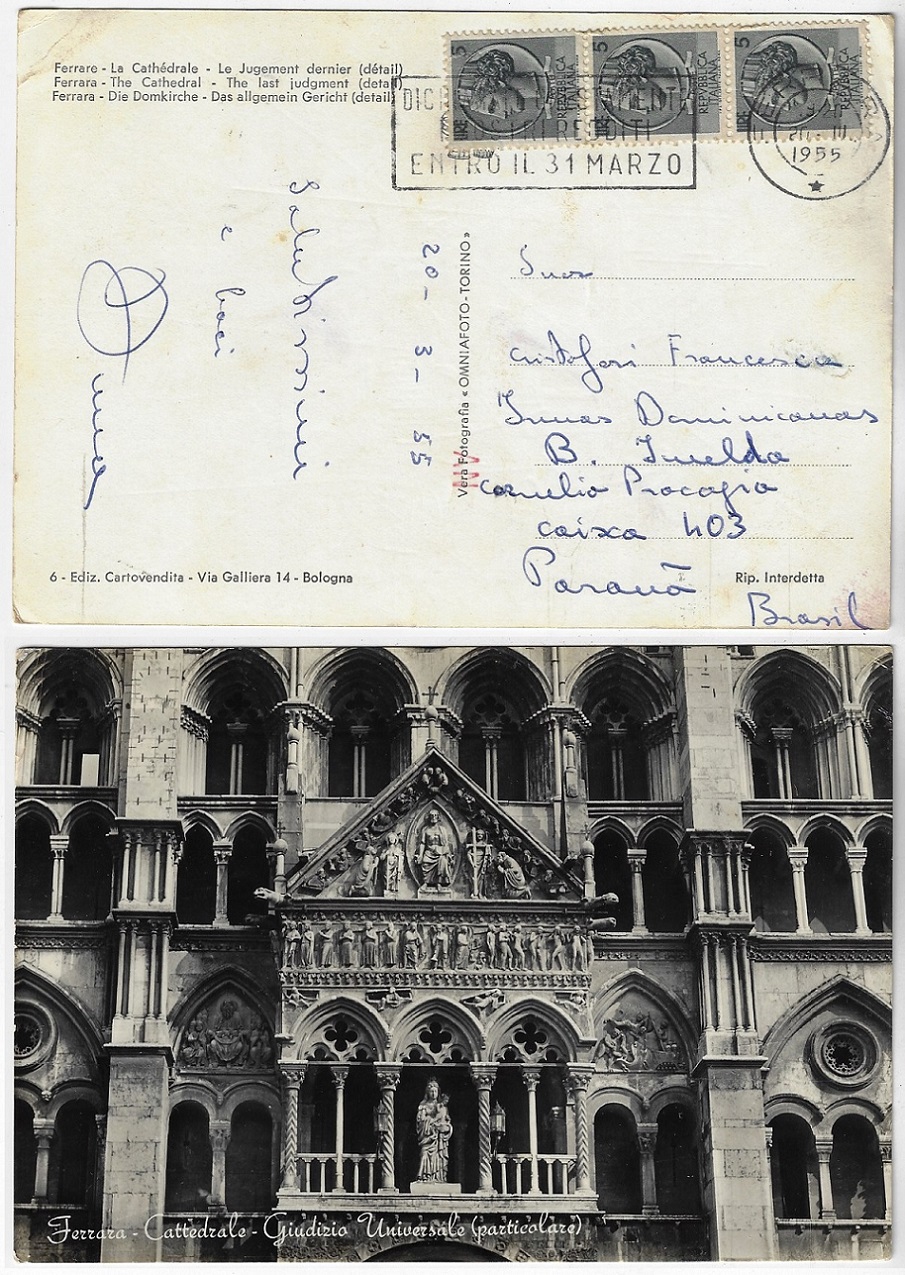 Ferrare - La Cathédrale - Le Jugement dernier (détail)
Ferrara - The Cathedral - The last judgment (detail)
Ferrara - Die Domkirche - Das allgemein Gericht (detail)
5 LIRE REPVBBLICA ITALIANA
5 LIRE REPVBBLICA ITALIANA
5 LIRE REPVBBLICA ITALIANA
REDDITI
ENTRO IL 31 MARZO
1955
Salutissimi
e baci
Anna
20-3-55
Vera Fotografia « OMNIAFOTO-TORINO»
Suor
Cristofori Francesca
Irmas Dominicanas
B. Imelda
Cornelio Procopio
caixa 403
Paranà
Brasil
6 - Ediz. Cartovendita - Via Galliera 14 - Bologna
Rip. Interdetta
Ferrara - Cattedrale - Giudizio Universale (particolare)